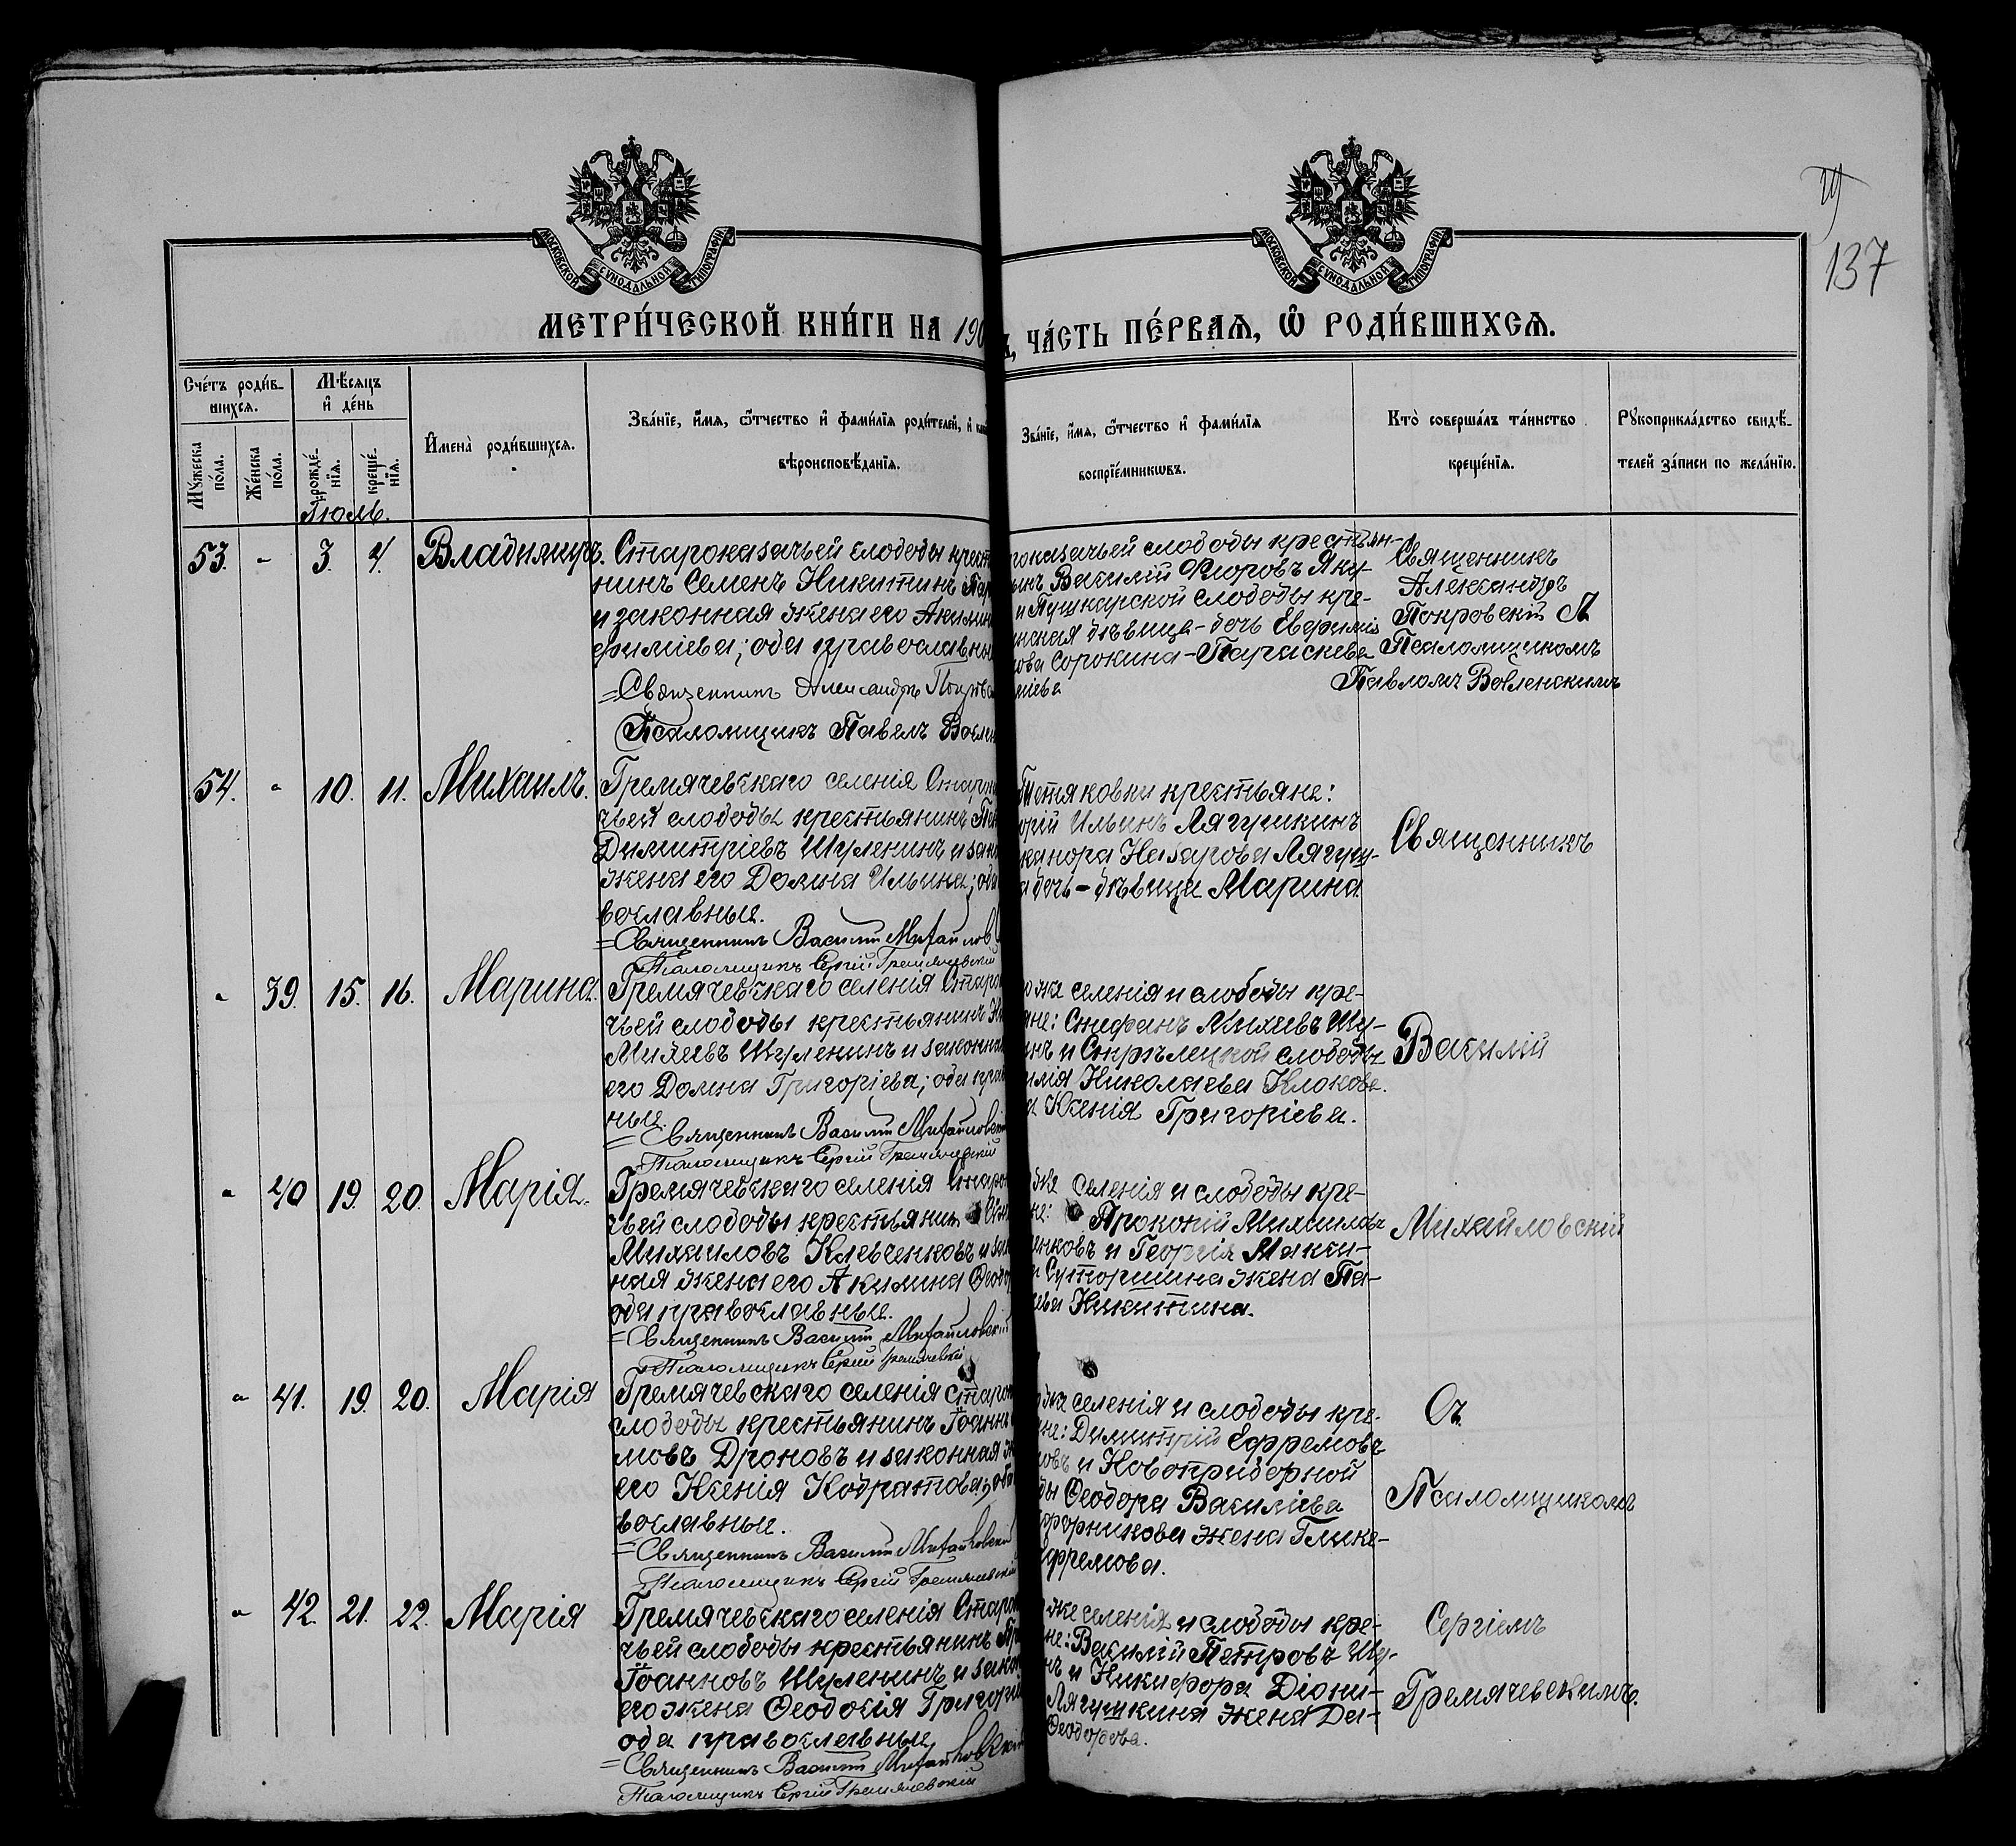 МОСКОВСКОЙ СѴНОДАЛЬНОЙ ТИПОГРАФІИ
МОСКОВСКОЙ СѴНОДАЛЬНОЙ ТИПОГРАФІИ
137
МЕТРИ́ЧЕСКОЙ КНИ́ГИ НА 190
ЧА́СТЬ ПЕ́РВАѦ, Ѽ РОДИ́ВШИХСѦ.
Сче́тъ роди́в-
шихсѧ.
Мѣ́сѧцъ
и҆ де́нь
Мꙋ́жеска по́ла.
Же́нска по́ла.
рожде́-
нїѧ.
креще́-
нїѧ.
И҆мена̀ роди́вшихсѧ.
Зва́нїе, и҆́мѧ, ѻ҆́тчество и҆ фами́лїѧ роди́телей, и҆
вѣроисповѣ́данїѧ.
Зва́нїе, и҆́мѧ, ѻ҆́тчество и҆ фами́лїѧ
воспрїе́мникѡвъ.
Кто̀ соверша́лъ та́инство
креще́нїѧ.
Рꙋкоприкла́дство свидѣ́-
телей за́писи по жела́нїю.
Іюль.
53. - 3. 4. Владимиръ.
Староказачьей слободы крест
нинъ Семенъ Никитинъ
и законная жена его Акили
фиміева; оба православны
=Священникъ Александръ Покров
Псаломщикъ Павелъ Восле
роказачьей слободы крестьян-
Василій Флоровъ Яку-
и Пушкарской слободы кре-
нская дѣвица-дочь Евфимія
ова Сорокина-Параскева
міева
Священникъ
Александръ
Покровскій съ
Псаломщикомъ
Павломъ
54. " 10. 11. Михаилъ.
Гремячевскаго селенія Старо
чьей слободы крестьянинъ
Димитріевъ Шуленинъ и зак
жена его Домна Ильина; оба
вославные.
=Священникъ Василій Михайлов
Псаломщикъ Сергій Гремячевскій
крестьяне:
орій Ильинъ Лягушкинъ
канора Назарова Лягуш-
а дочь-дѣвица Марина
Священникъ
" 39. 15. 16. Марина.
Гремячевскаго селенія Старо
чьей слободы крестьянинъ
Михеевъ Шуленинъ и законна
его Домна Григоріева; оба прав
ные.
= Священникъ Василій Михайловскій
Псаломщикъ Сергій Гремячевскій
же селенія и слободы кре-
яне: Стефанъ Михеевъ Шу-
инъ и Стрѣлецкой слободы
илія Николаева Клокова
а Ксенія Григоріева.
Василій
" 40 19. 20. Марія.
Гремячевскаго селенія Старо
чьей слободы крестьянин
Михаиловъ Клевченковъ и зак
ная жена его Акилина Ѳеодо
оба православные.
=Священникъ Василій Михайловскій
Псаломщикъ Сергій Гремячевскій
же селенія и слободы кре-
не: Прокопій Михаиловъ
енковъ и Георгія Макси-
а Сутормина жена Па-
ева Никитина.
Михайловскій
" 41. 19. 20. Марія
Гремячевскаго селенія Старо
слободы крестьянинъ Іоаннъ
мовъ Дроновъ и законная ж
его Ксенія Кодратова; оба
вославные.
=Священникъ Василій Михайловскій
Псаломщикъ Сергій Гремячевскій
же селенія и слободы кре-
не: Димитрій Ефремовъ
овъ и Новоприборной
ды Ѳеодора Василіева
жена Глике-
Ефремова.
Съ
Псаломщикомъ
" 42. 21. 22. Марія
Гремячевскаго селенія Старо
чьей слободы крестьянинъ
Іоанновъ Шуленинъ и зако
его жена Ѳеодосія Григорі
оба православные
=Священникъ Василій Михайловскій
Псаломщикъ Сергій Гремячевскій
же селенія и слободы кре-
не: Василій Петровъ Шу-
нъ и Никифора Діони-
Лягушкина жена Да-
Ѳеодорова.
Сергіемъ
Гремячевскимъ.